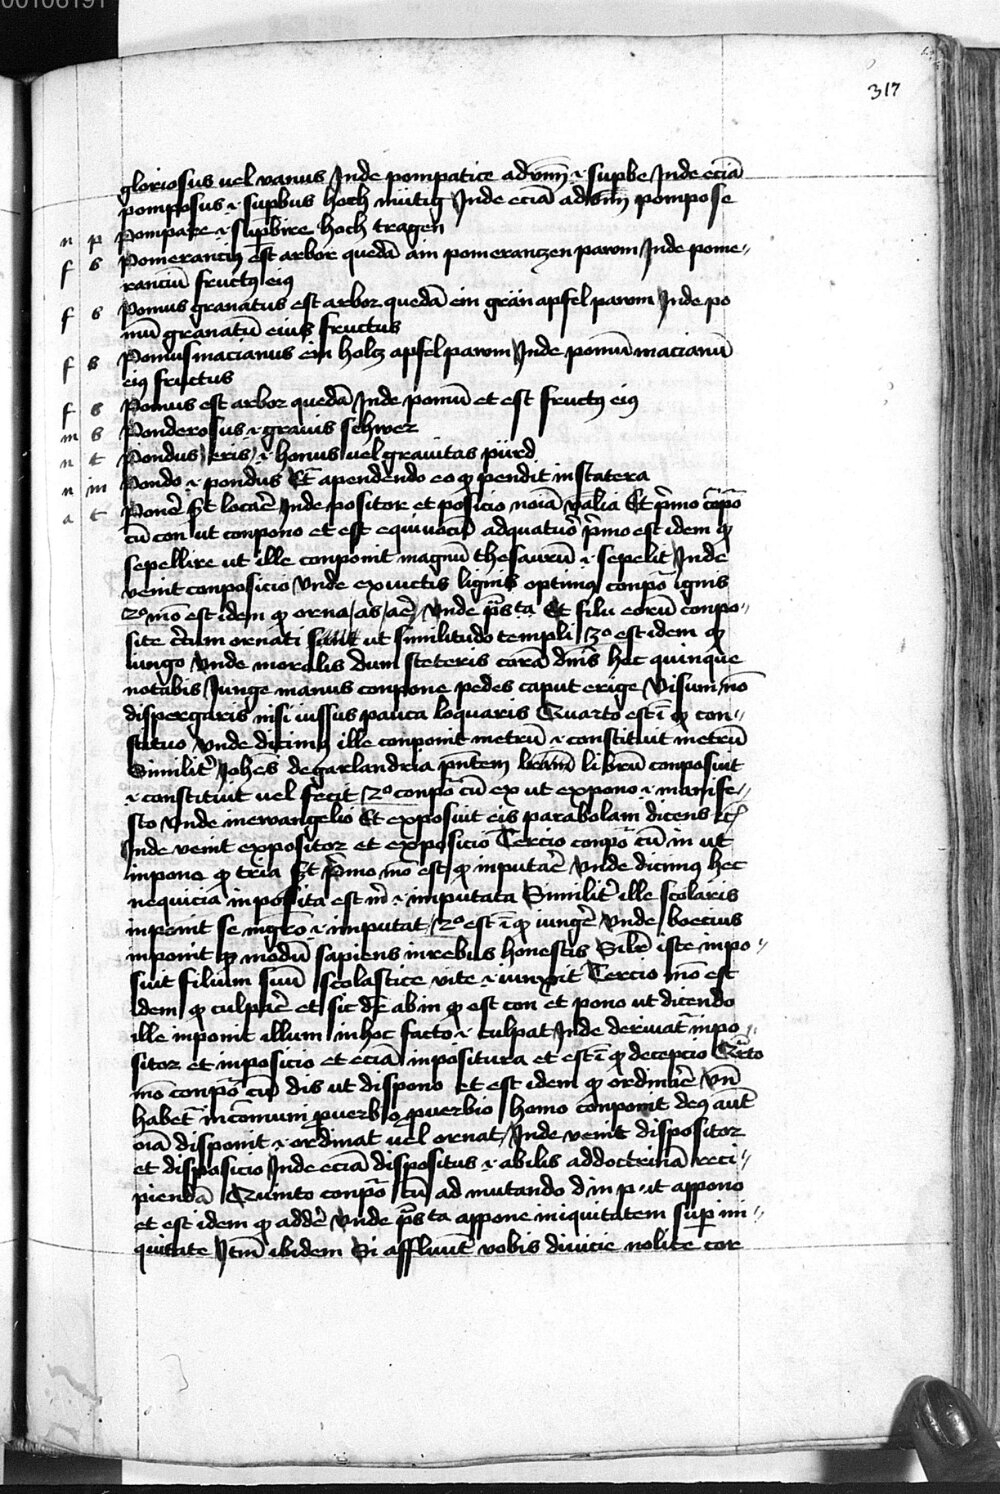 00108191
317
gloriosus uel vanus Inde pompatice adv̄m ·i· supbe Inde eciā
pomposus ·i· supbus hoch mütig Inde eciā adv̄m pompose
n p Pompare ·i· supbire hoch tragen
f s Pomeranciꝰ est arbor quedā ain pomerantzen pawm Inde pome˶
ranciū fructꝰ eiꝰ
f s Pomus granatus est arbor quedā ein grän apfel pawm Inde po
mū granatū eius fructus
f s Pomusmacianus ein holtz apfel pawm Inde pomū macianū
eiꝰ fructus
f s Pomus est arbor quedā Inde pomū et est fructꝰ eiꝰ
m s Ponderosus ·i· grauis schwer
n t Pondus eris ·i· honus uel grauitas pürd
n in Pondo ·i· pondus Et̄ apendendo eo ꝙ pendit in statera
a t Ponē͛ s̄t locāē Inde positor et posicio noīa v͛alia Et p͛mo cōpō
cū con ut conpono et est equiuocū ad quatuor p͛mo est idem ꝙ
sepellire ut ille conponit magnū thesaurū ·i· sepelit Inde
venit conposicio Vnde ex iunctis lignis optimꝰ conpō ignis
2º mō est idem ꝙ orna/as/aē͛ Vnde p̄s ta Et filie eorū conpo˶
site c͛cum ornati ut similitudo templi 3º est idem ꝙ
iungo Vnde moralis dum steteris corā dn̄is hec quinque
notabis Iunge manus conpone pedes caput erige Visum nō
dispergaris nisi iussus pauca loquaris Quarto est ī ꝙ con˶
stituo Vnde dicimꝰ ille conponit metrū ·i· constituit metrū
Similit͛ Johēs de garlandria pn̄tem librū conposuit
·i· constituit uel fecit 2º conpō cū ex ut expono ·i· manife˶
sto Vnde in ewangelio Et exposuit eis parabolam dicens ꝛc̄
Inde venit expositor et exposicio Tercio conpō cū in ut
inpono ꝙ tria s̄t P͛mo mō est ꝙ inputāē Vnde dicimus hec
nequicia inposita est m̄ ·i· imputata Similit͛ ille scolaris
inponit se nigro ·i· imputat 2º est ī ꝙ iungē͛ Vnde boecius
inponit ꝙ modū sapiens in rebus honestis Silr̄ iste inpo˶
suit filium suū scolastice vite ·i· iunxit Tercio mō est
Idem ꝙ culpāē et sic dr̄ ab in ꝙ est con et pono ut dicendo
ille inponit illum in hoc facto ·i· culpat Inde deriuat͛ inpo˶
sitor et inposicio et eciā inpositura et est ī ꝙ decepcio Q͛rto
mō conpō cū dis ut dispono et est idem ꝙ ordināē Vn̄
habet͛ in comuni ꝓuerbio homo conponit deꝰ aut̄
oīa disponit ·i· ordinat uel ornat Inde venit dispositor
et disposicio Inde eciā dispositus ·i· abilis ad doctrinā reci˶
piendā Quinto conpō cū ad mutando d in p ut appono
et est idem ꝙ addē͛ Vnde p̄s ta appone iniquitatem sup ini˶
quitate Itm̄ ibidem Si affluūt vobis diuicie nolite cor